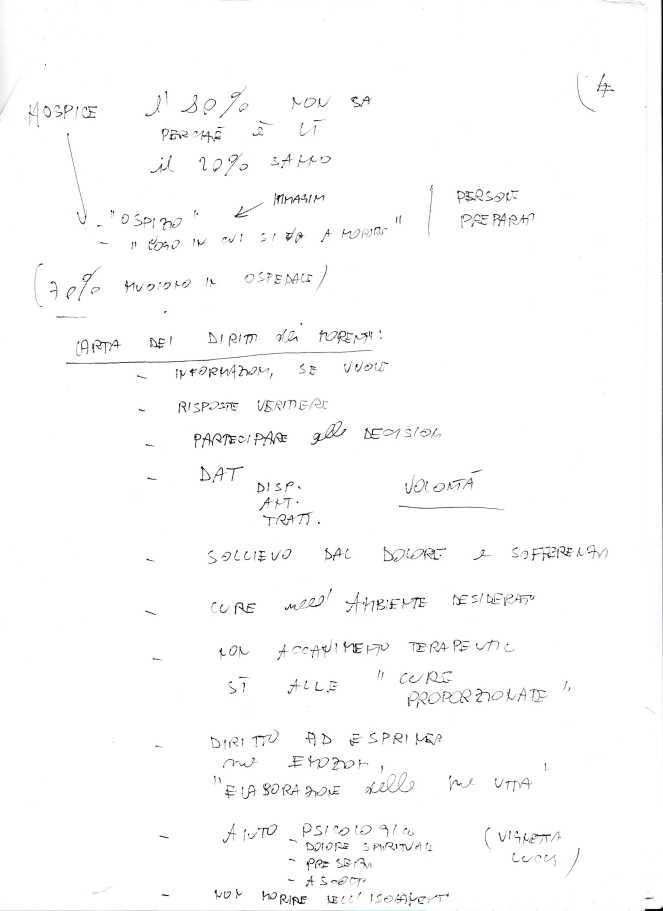 4
HOSPICE l' 80% NON SA
PERCHÈ È LÌ
il 20% SANNO
- "OSPIZIO" IMMAGINI PERSONE
- "LUOGO IN CUI SI VA A MORIRE" PREPARATI
(70% MUOIONO IN OSPEDALE)
CARTA DEI DIRITTI dei MORENTI:
- INFORMAZIONI, SE VUOLE
- RISPOSTE VERITIERE
- PARTECIPARE alle DECISIONI
- DAT
DISP. VOLONTÀ
ANT.
TRATT.
- SOLLIEVO DAL DOLORE e SOFFERENZA
- CURE nell' AMBIENTE DESIDERATO
- NON ACCANIMENTO TERAPEUTIC
SÌ ALLE "CURE
PROPORZIONATE"
- DIRITTO AD ESPRIMERE
sue EMOZIONI,
"ELABORAZIONE della sua VITA"
- AIUTO PSICOLOGICO (VIGNETTA
- DOLORE SPIRITUALE
- PRESENZA
- ASCOLTO
- NON MORIRE NELL'ISOLAMENTO